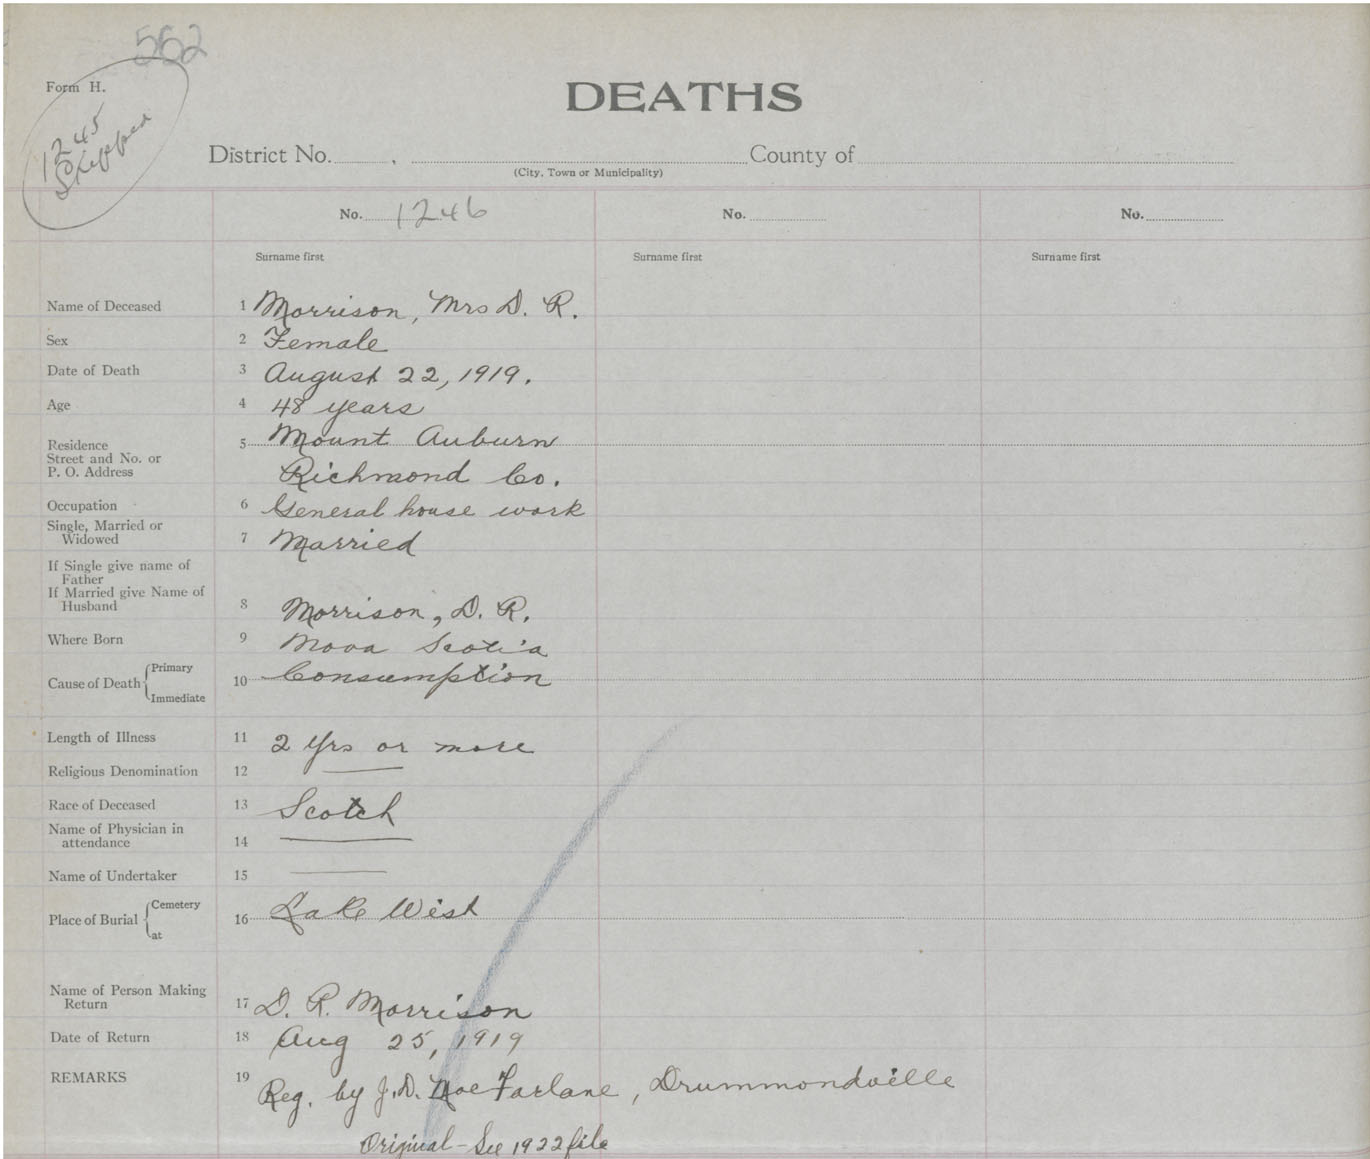 552
Form H.
1245
Skipped
DEATHS
District No. , County of
(City, Town or Municipality)
No. 1246 No. No.
Surname first Surname first Surname first
Name of Deceased 1 Morrison, Mrs D. R.
Sex 2 Female
Date of Death 3 August 22, 1919.
Age 4 48 years
Residence 5 Mount Auburn
Street and No. or
P. O. Address Richmond Co.
Occupation 6 General house work
Single, Married or
Widowed 7 Married
If Single give name of
Father
If Married give Name of
Husband 8 Morrison, D. R.
Where Born 9 Nova Scotia
Cause of Death { Primary Immediate 10 Consumption
Length of Illness 11 2 yrs or more
Religious Denomination 12 —
Race of Deceased 13 Scotch
Name of Physician in
attendance 14 —
Name of Undertaker 15 —
Place of Burial { Cemetery at 16 Lake West
Name of Person Making
Return 17 D. R. Morrison
Date of Return 18 Aug 25, 1919
REMARKS 19 Reg. by J. D. MacFarlane, Drummondville
Original - See 1922 file